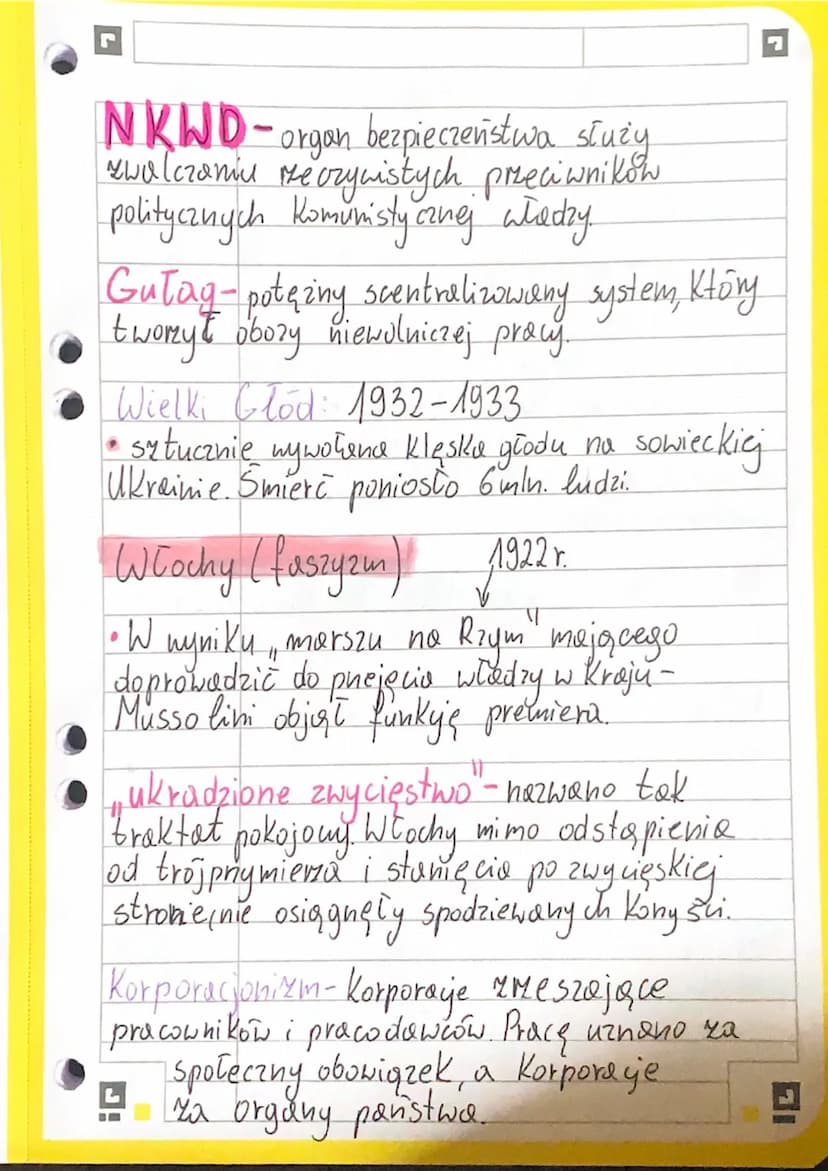 NKWD - organ bezpieczeństwa służy
zwalczaniu rzeczywistych przeciwników
politycznych komunistycznej władzy.
Gułag - potężny scentralizowany system, który
tworzył obozy niewolniczej pracy.
Wielki Głód: 1932-1933
• sztucznie wywołana klęska głodu na sowieckiej
Ukrainie. Śmierć poniosło 6 mln. ludzi.
Włochy (faszyzm) 1922 r.
• W wyniku „marszu na Rzym" mającego
doprowadzić do przejęcia władzy w kraju -
Mussolini objął funkcję premiera.
„ukradzione zwycięstwo" - nazwano tak
traktat pokojowy. Włochy mimo odstąpienia
od trójprzymierza i stanięcia po zwycięskiej
stronie, nie osiągnęły spodziewanych korzyści.
Korporacjonizm - korporacje zrzeszające
pracowników i pracodawców. Pracę uznano za
społeczny obowiązek, a korporacje
za organy państwa.